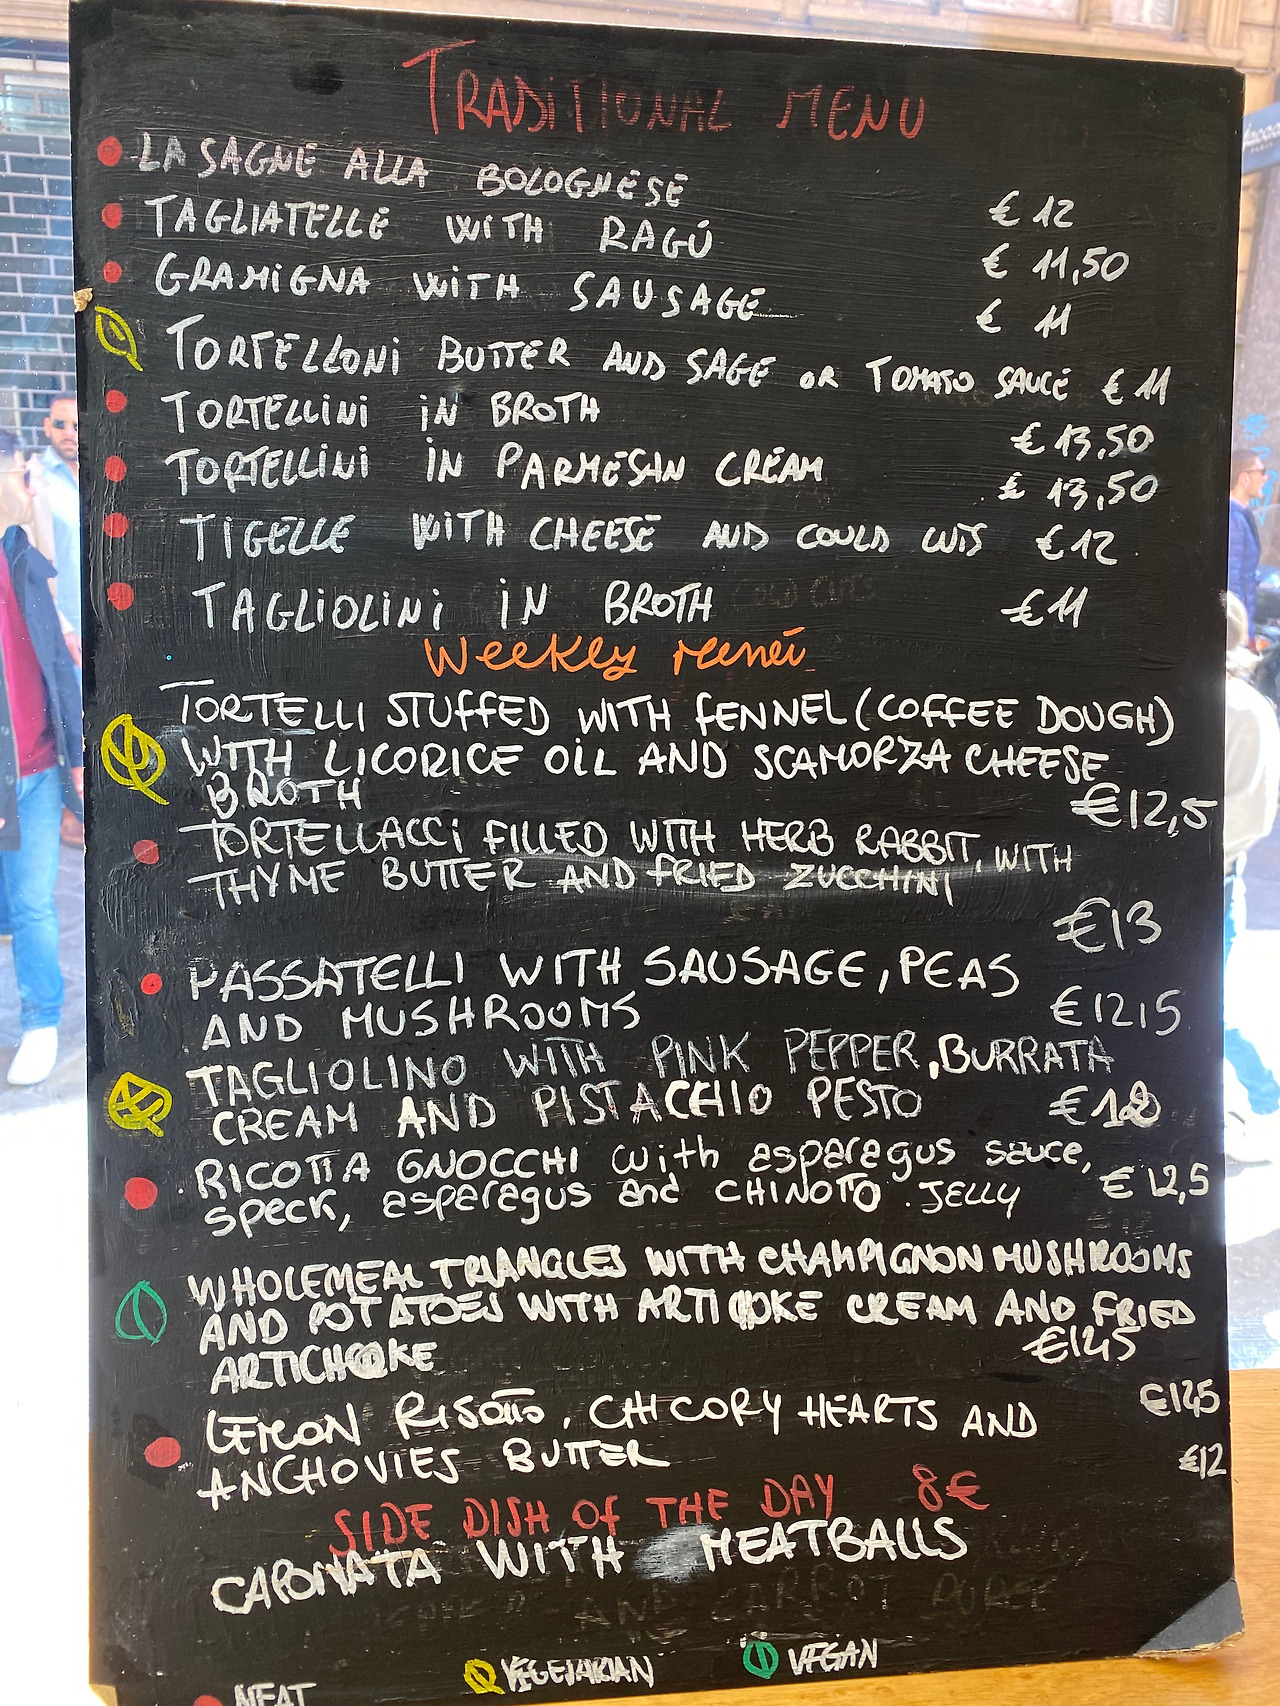 TRADITIONAL MENU
LASAGNE ALLA BOLOGNESE € 12
TAGLIATELLE WITH RAGÚ € 11,50
GRAMIGNA WITH SAUSAGE € 11
TORTELLONI BUTTER AND SAGE OR TOMATO SAUCE € 11
TORTELLINI IN BROTH € 13,50
TORTELLINI IN PARMESAN CREAM € 13,50
TIGELLE WITH CHEESE AND COULD CUTS € 12
TAGLIOLINI IN BROTH € 11
Weekly menù
TORTELLI STUFFED WITH FENNEL (COFFEE DOUGH)
WITH LICORICE OIL AND SCAMORZA CHEESE
BROTH €12,5
TORTELLACCI FILLED WITH HERB RABBIT, WITH
THYME BUTTER AND FRIED ZUCCHINI
€13
PASSATELLI WITH SAUSAGE, PEAS
AND MUSHROOMS €12,5
TAGLIOLINO WITH PINK PEPPER, BURRATA
CREAM AND PISTACCHIO PESTO
RICOTTA GNOCCHI with asparagus sauce, € 12,5
speck, asparagus and CHINOTTO JELLY
WHOLEMEAL TRIANGLES WITH CHAMPIGNON MUSHROOMS
AND POTATOES WITH ARTICHOKE CREAM AND FRIED
ARTICHOKE €12,5
LEMON RISOTTO, CHICORY HEARTS AND €12,5
ANCHOVIES BUTTER €12
SIDE DISH OF THE DAY 8€
CAPONATA WITH MEATBALLS
AND CARROT PUREE
MEAT VEGETARIAN VEGAN